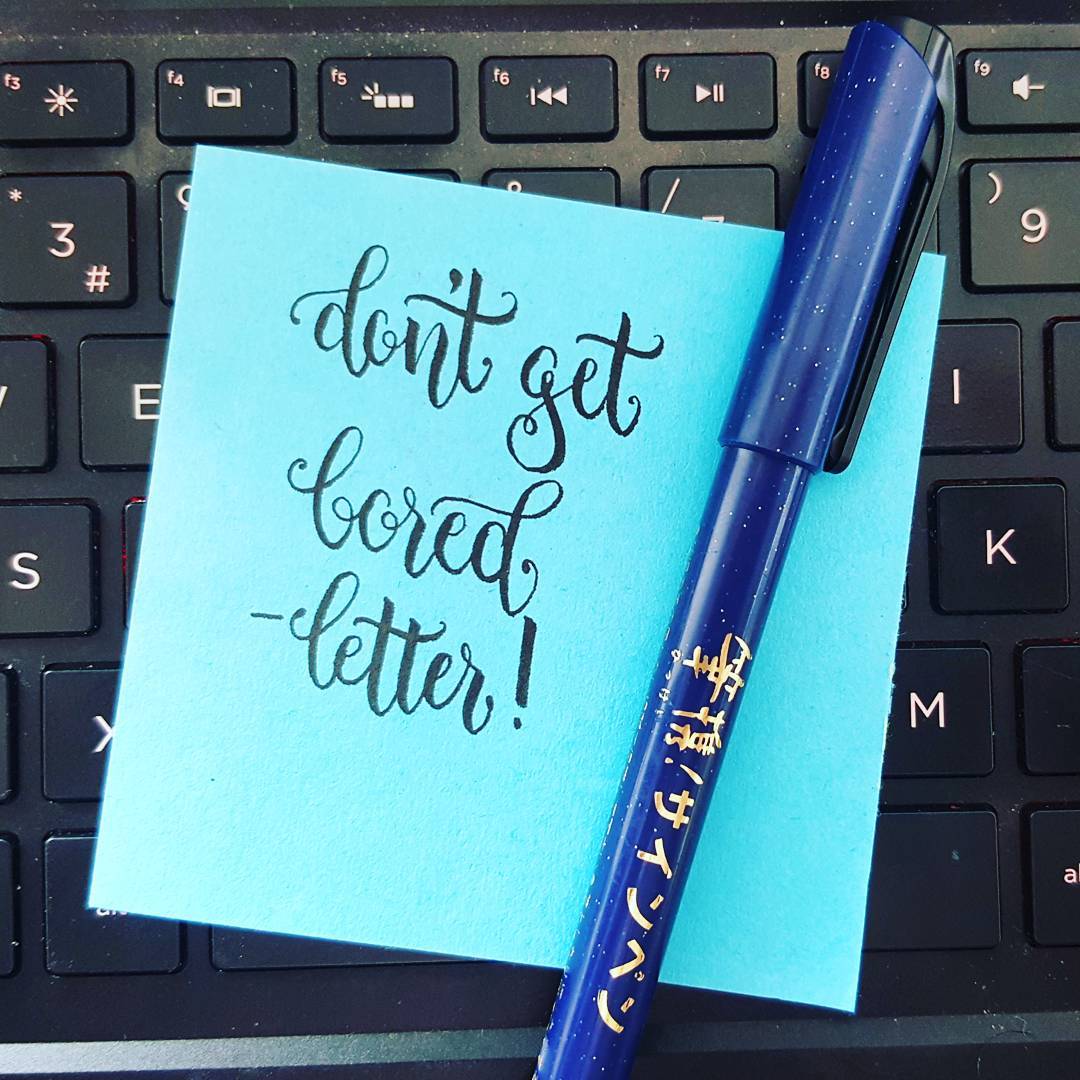 f3
f4
f5
f6
f7
f8
f9
*
3
#
/
7
)
9
E
I
S
K
X
M
don't get
bored
-letter!
筆様!サインペン